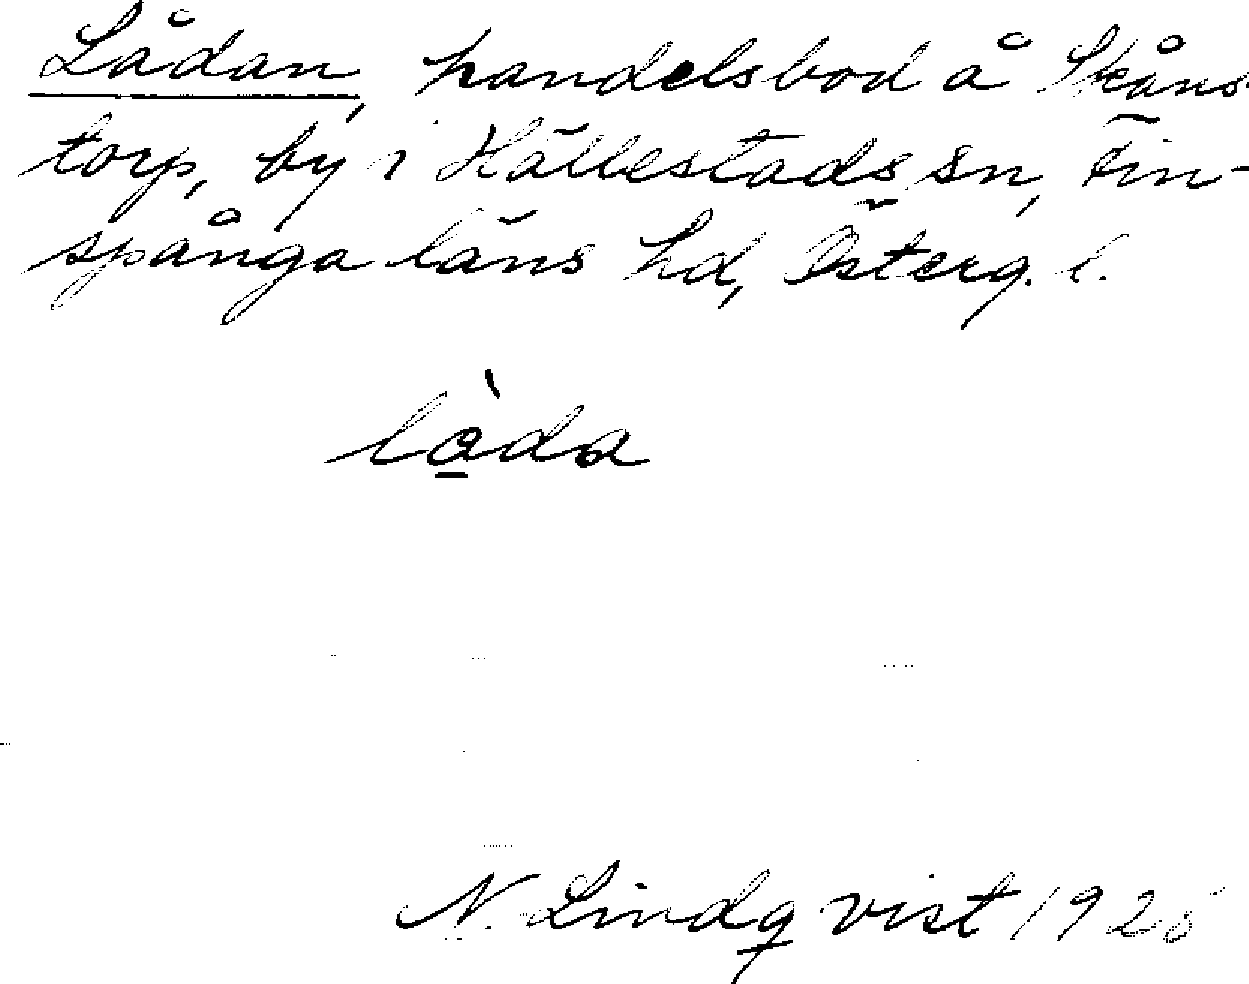 Lådan, handelsbod å Skåns-
torp, by i Hällestads sn, Fin-
spånga läns hd, Österg. l.
lò̲da
N. Lindqvist 1925